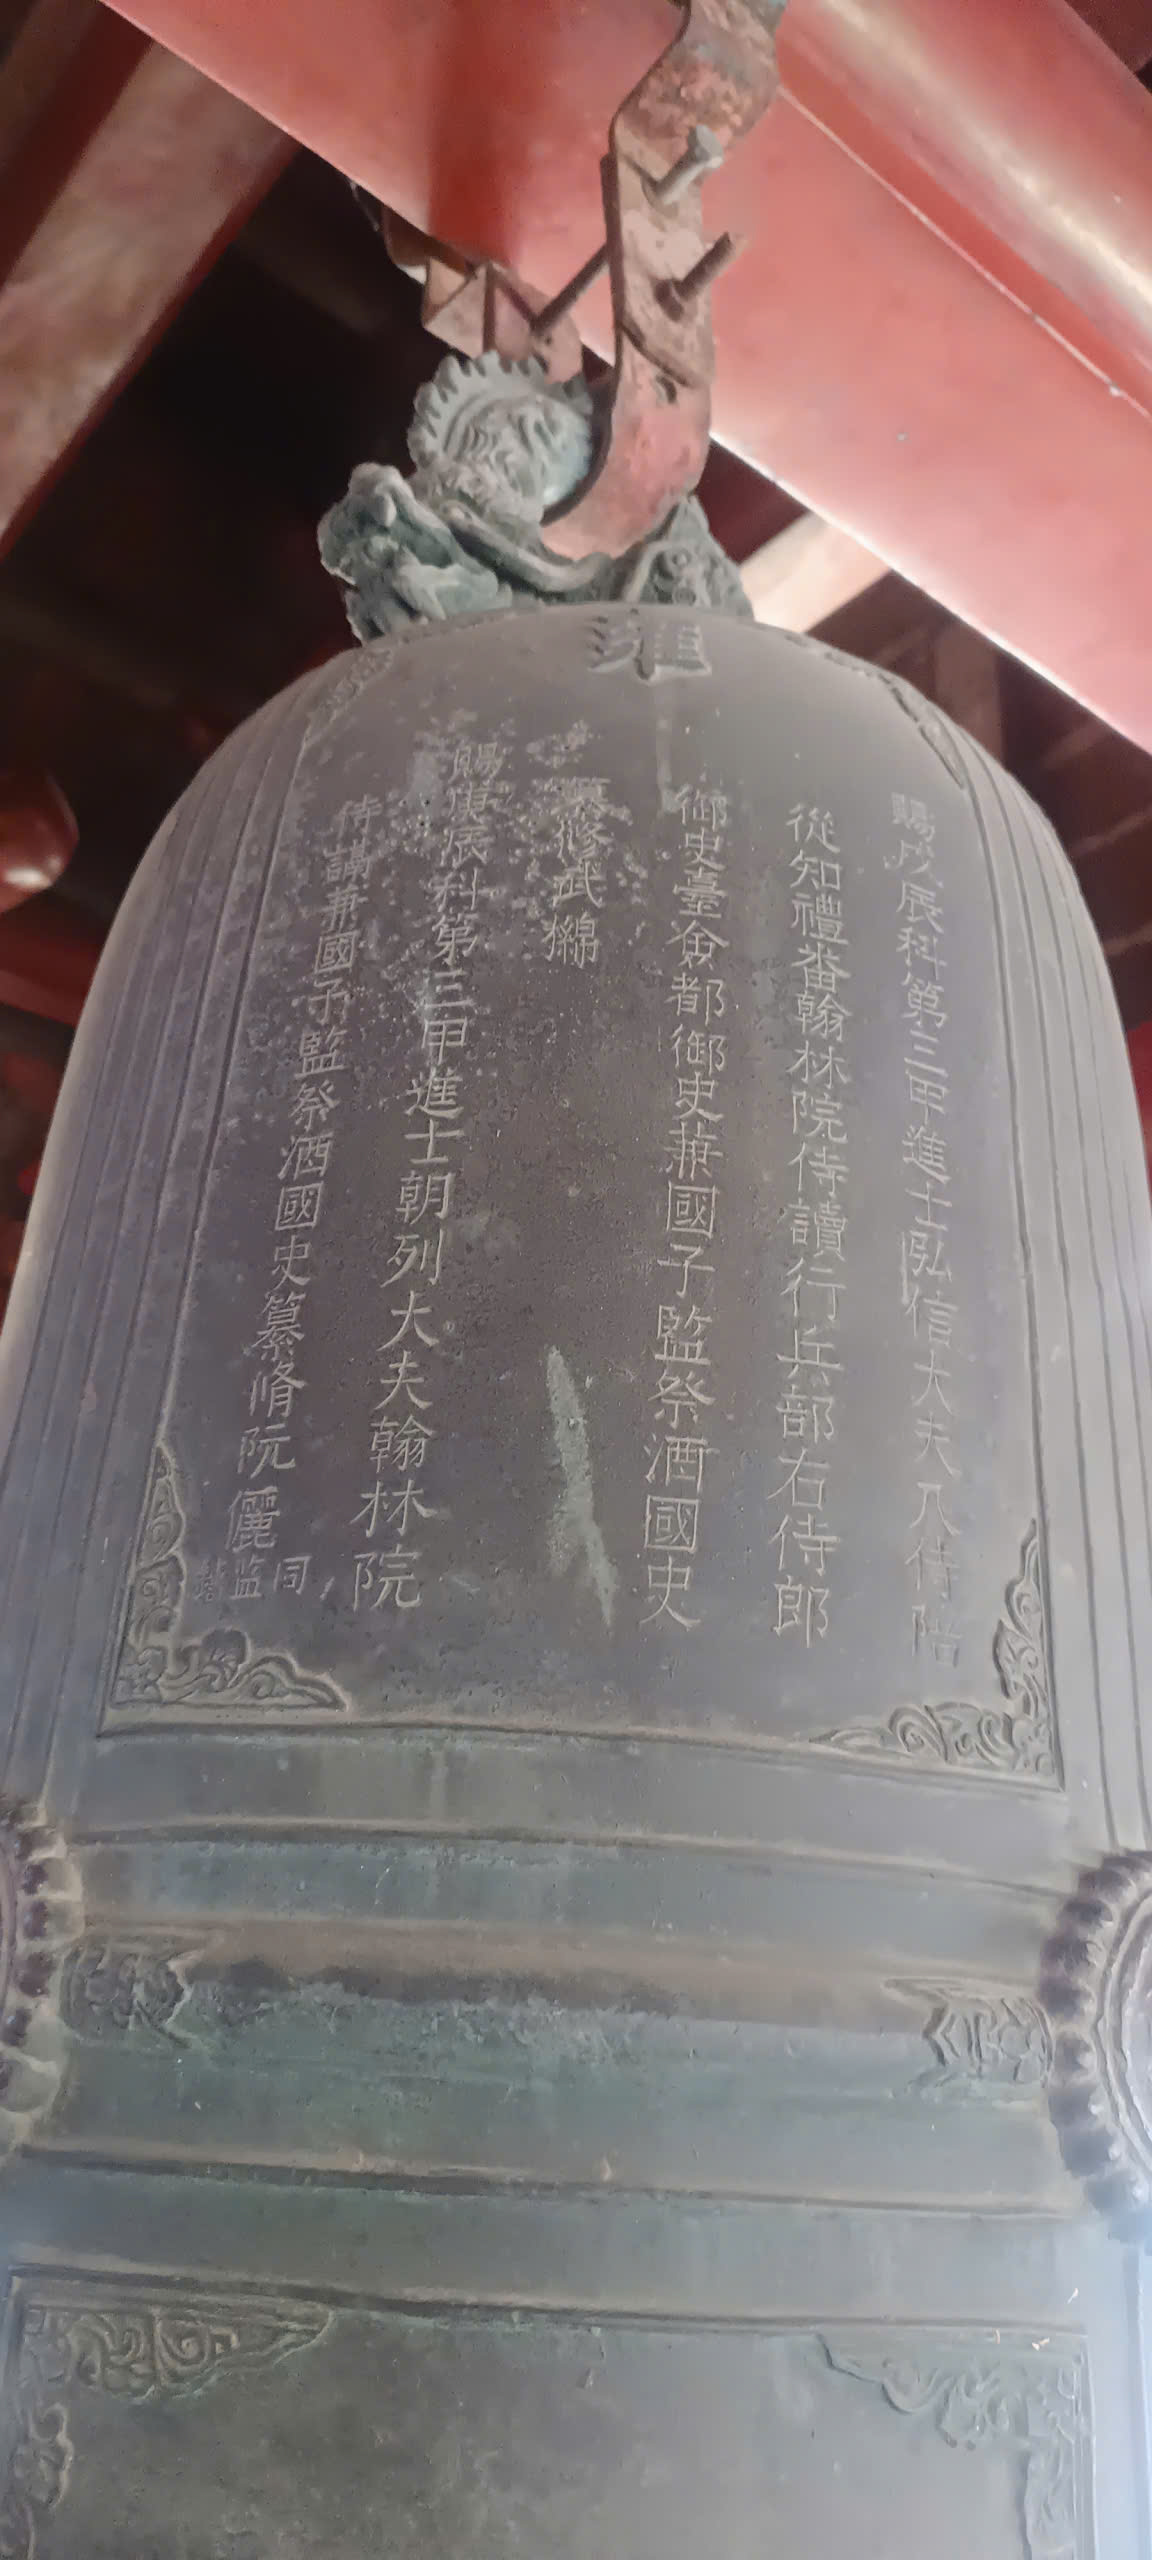 雍
賜戊辰科第三甲進士弘信大夫入侍陪
從知禮畨翰林院侍讀行兵部右侍郎
御史臺僉都御史兼國子監祭酒國史
纂修武㡢
賜庚辰科第三甲進士朝列大夫翰林院
侍講兼國子監祭酒國史纂脩阮儷
同監